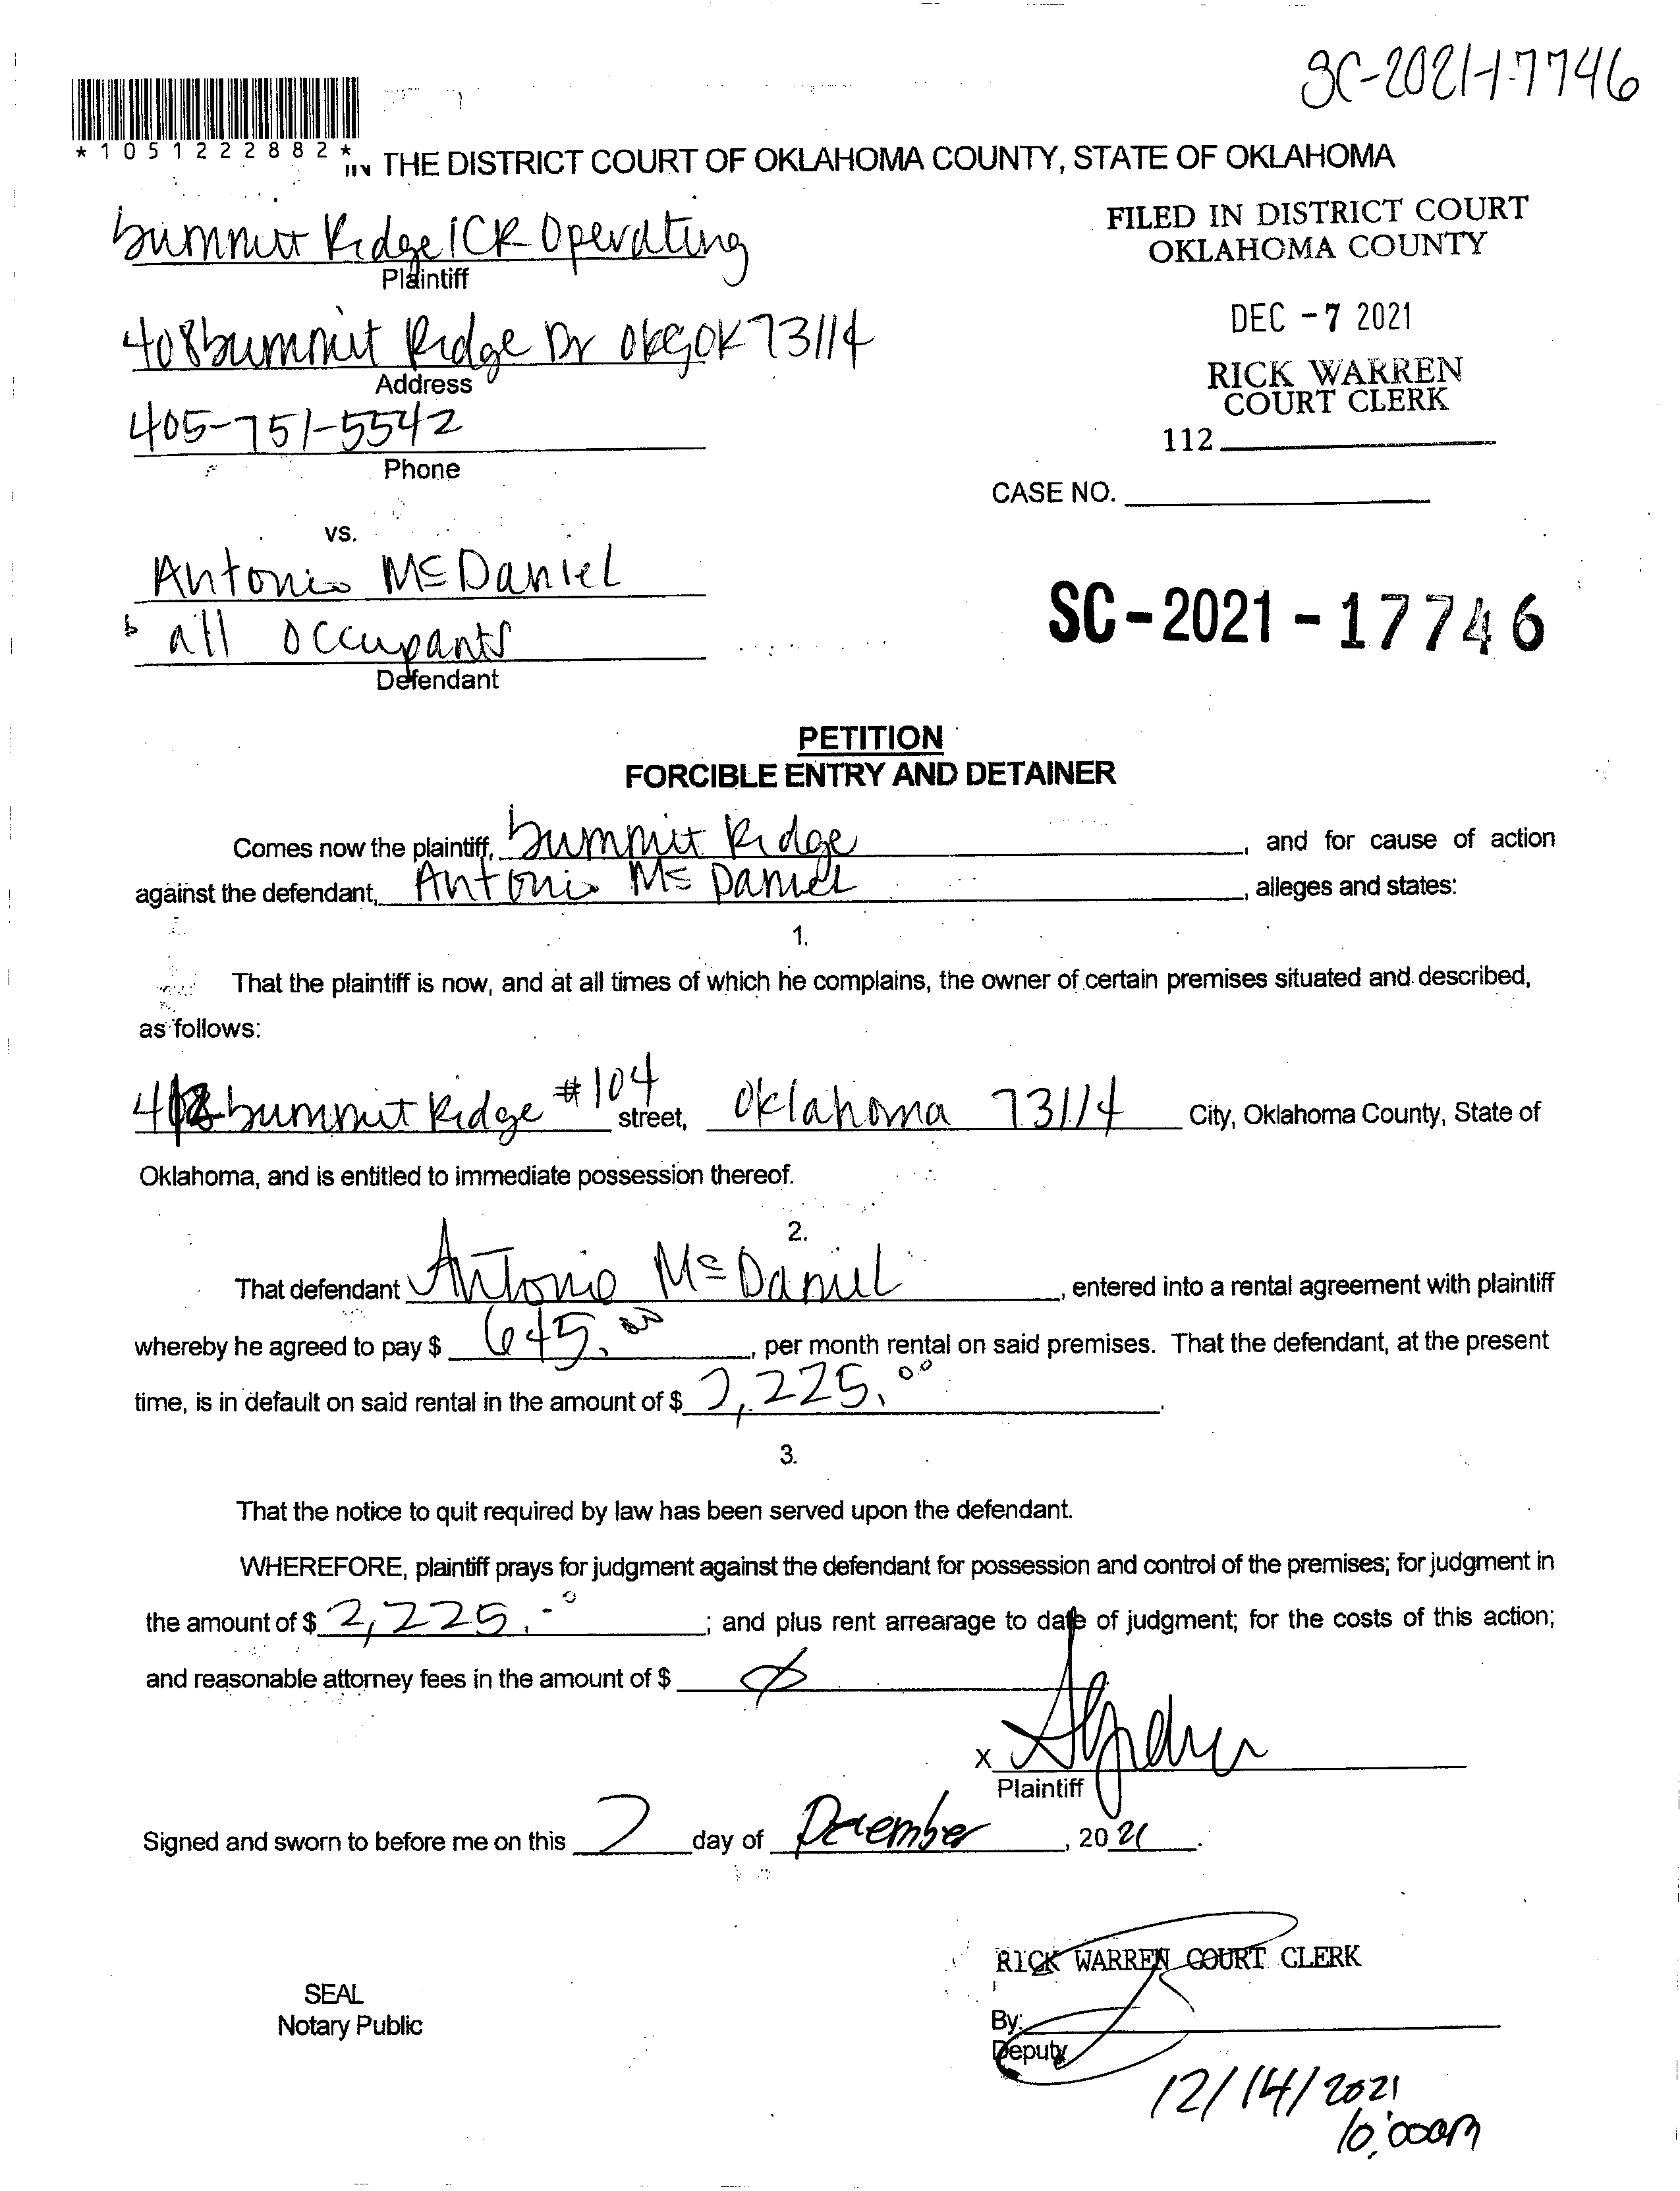 SC-2021-17746
*1051222882*
IN THE DISTRICT COURT OF OKLAHOMA COUNTY, STATE OF OKLAHOMA
Summit Ridge ICR Operating
Plaintiff
FILED IN DISTRICT COURT
OKLAHOMA COUNTY
408 Summit Ridge Dr OKC, OK 73114
Address
DEC -7 2021
RICK WARREN
COURT CLERK
405-751-5542
Phone
112
CASE NO.
vs.
Antonio McDaniel
all occupants
Defendant
SC-2021-17746
PETITION
FORCIBLE ENTRY AND DETAINER
Comes now the plaintiff, Summit Ridge, and for cause of action
against the defendant, Antonio McDaniel, alleges and states:
1.
That the plaintiff is now, and at all times of which he complains, the owner of certain premises situated and described,
as follows:
Summit Ridge #104 street, Oklahoma 73114 City, Oklahoma County, State of
Oklahoma, and is entitled to immediate possession thereof.
2.
That defendant Antonio McDaniel, entered into a rental agreement with plaintiff
whereby he agreed to pay $ 645.00, per month rental on said premises. That the defendant, at the present
time, is in default on said rental in the amount of $ 2,225.00.
3.
That the notice to quit required by law has been served upon the defendant.
WHEREFORE, plaintiff prays for judgment against the defendant for possession and control of the premises; for judgment in
the amount of $ 2,225.-0; and plus rent arrearage to date of judgment; for the costs of this action;
and reasonable attorney fees in the amount of $ Ø
X
Plaintiff
Signed and sworn to before me on this 7 day of December, 2021.
RICK WARREN COURT CLERK
SEAL
Notary Public
By:
Deputy
12/14/2021
10:00am